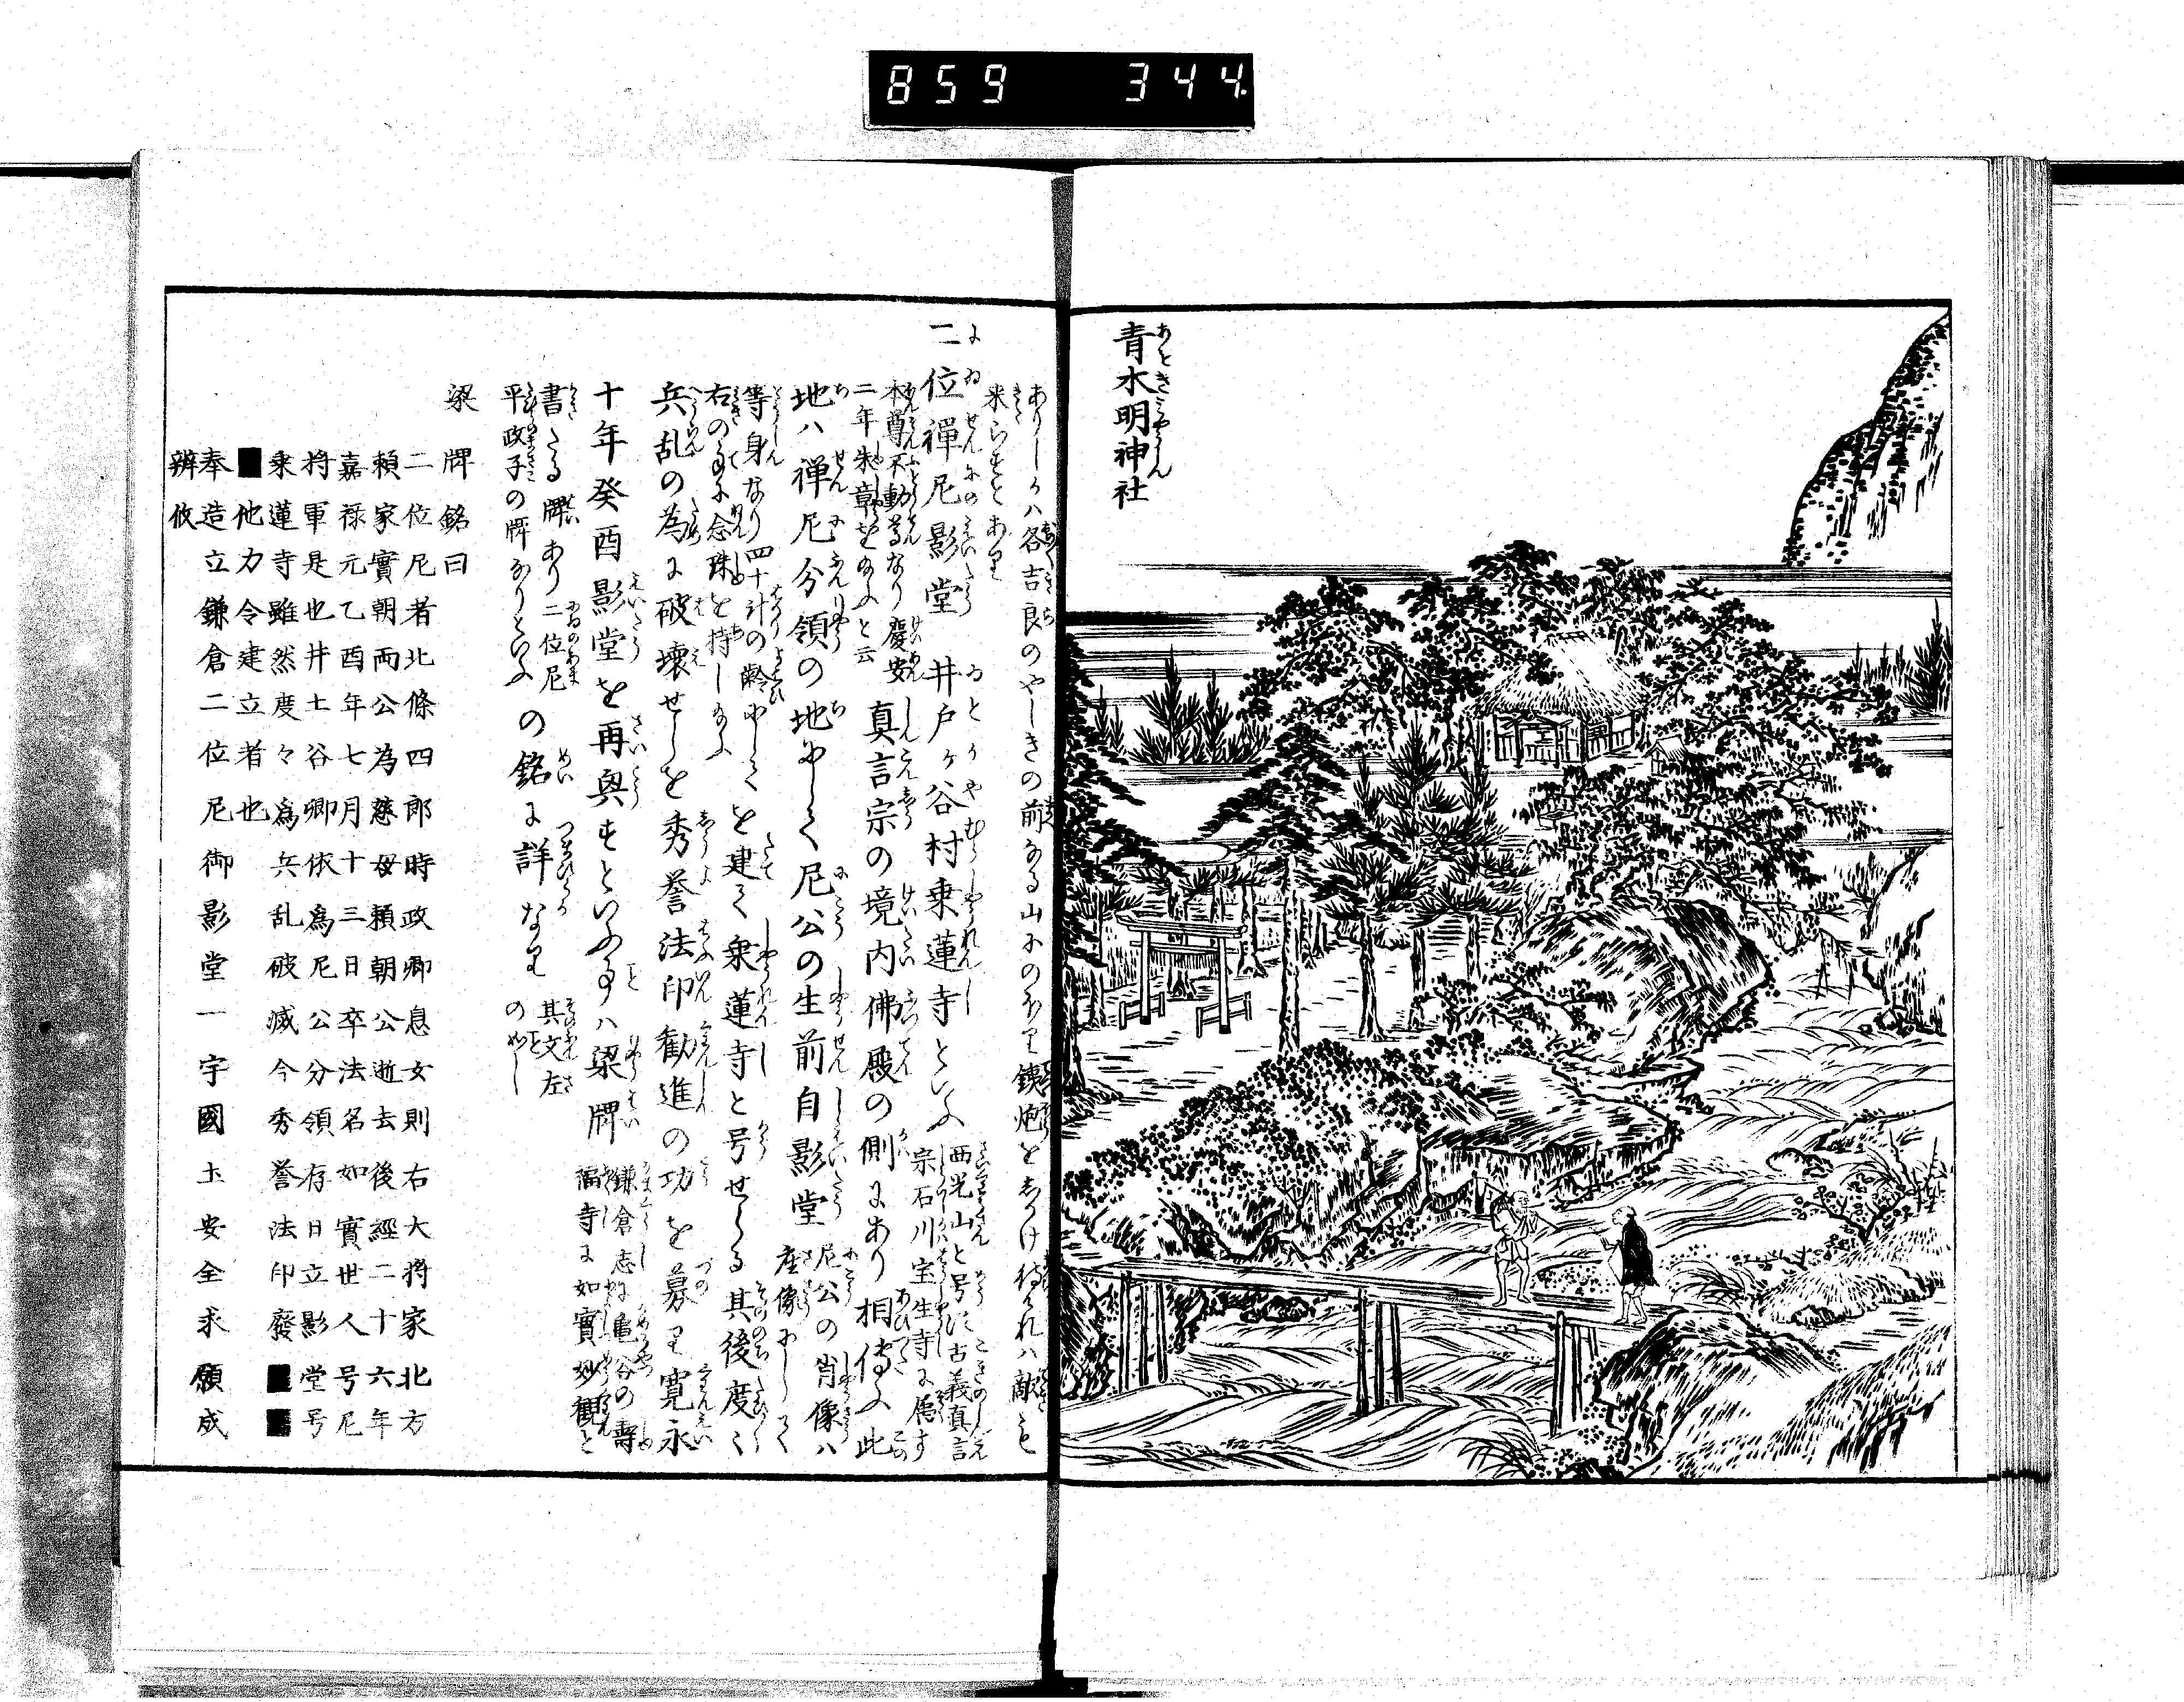 859 344
青木明神社
あをきミやうじん
ありしかハ各吉良のやしきの前なる山にのぼり鉄炮をしかけ待けれハ敵も
来らずとあり
二位禪尼影堂 井戸ヶ谷村乗蓮寺といふ 西光山と号す古義真言
宗石川宝生寺に属す
本尊不動尊なり慶安
二年朱章を賜ふと云 真言宗の境内佛殿の側にあり相傳ふ此
地ハ禅尼分領の地にして尼公の生前自影堂 尼公の肖像ハ
座像にして
等身なり四十計の齢にして
右の手に念珠を持し給ふ を建て乗蓮寺と号せらる其後度々
兵乱の為に破壊せしを秀誉法印勧進の功を募り寛永
十年癸酉影堂を再興すといふ事ハ梁牌 鎌倉志に亀谷の壽
福寺に如實妙観と
書たる牌あり二位尼
平政子の牌なりといふ の銘に詳なり 其文左
のごとし
梁牌銘曰
二位尼者北條四郎時政卿息女則右大将家北方
頼家實朝両公為慈母頼朝公逝去後經二十六年
嘉禄元乙酉年七月十三日卒法名如實世人号尼
将軍是也井土谷卿依為尼公分領存日立影堂号
乗蓮寺雖然度々為兵乱破滅今秀誉法印發■■
■他力令建立者也
奉造立鎌倉二位尼御影堂一宇國土安全求願成
辨攸